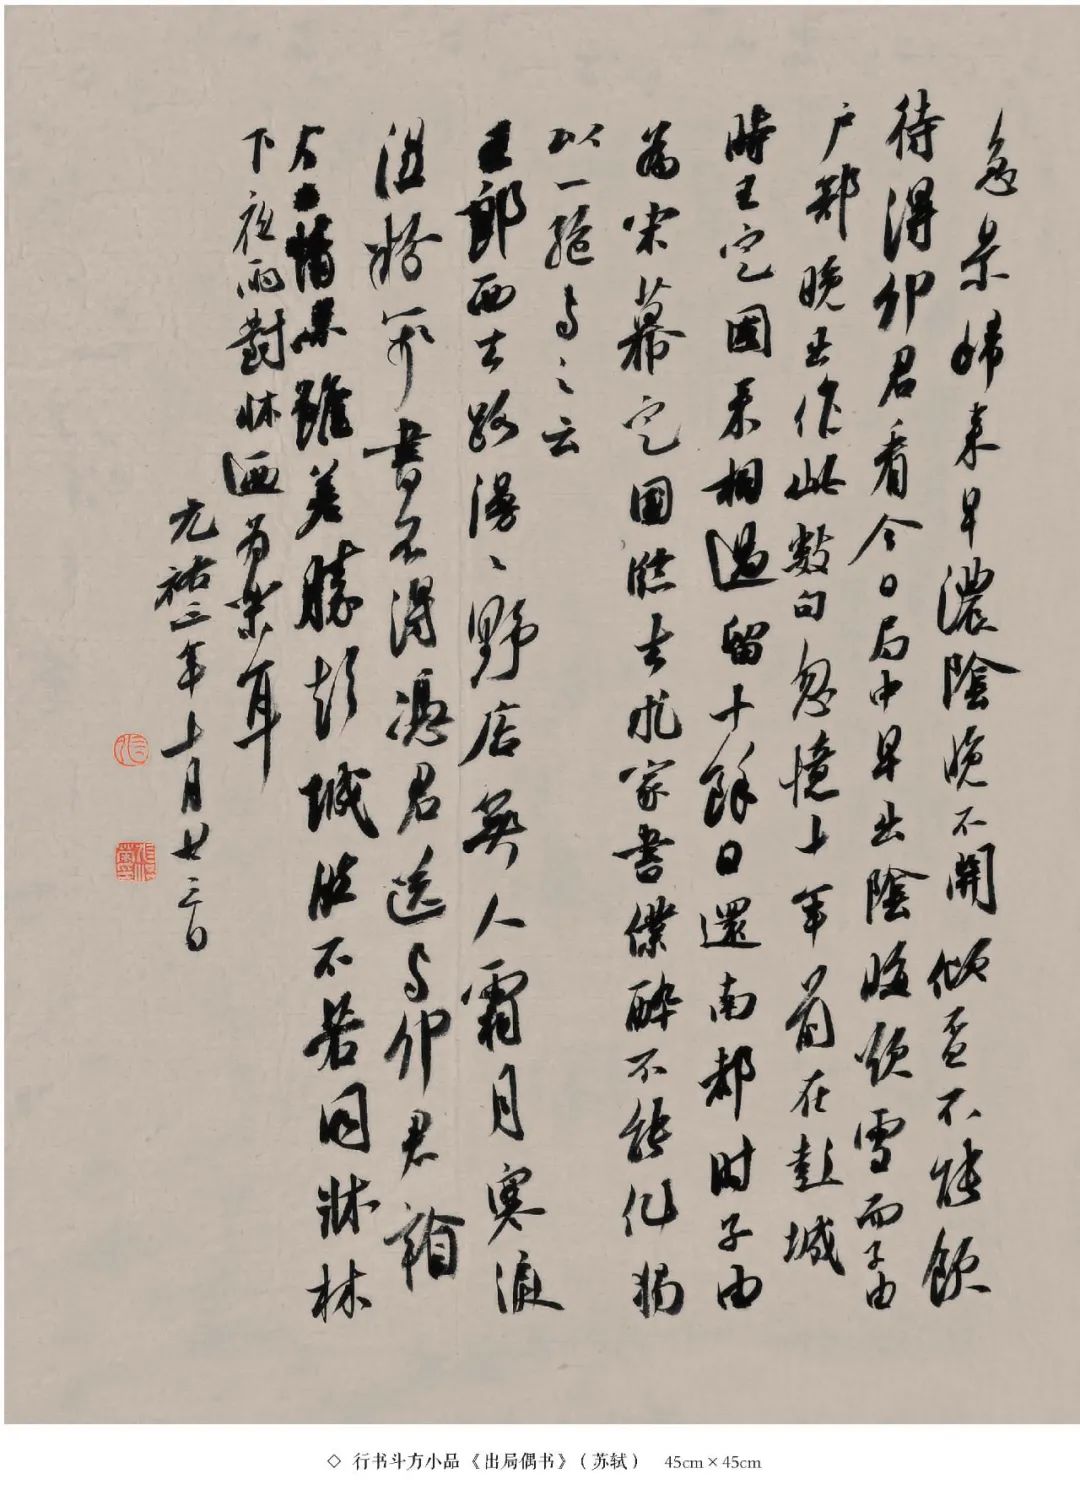 急景歸来早濃陰晚不開傾盃不能飲
待得卯君看今日局中早出陰晦欲雪而子由
户部晚出作此数句忽憶十年前在彭城
時王定國来相過留十餘日還南都时子由
為宋幕定國臨去求家書僕醉不能作獨
以一絕与之云
王郎西去路漫々野店無人霜月寒淚
濕粉箋書不得憑君送与卯君看
今日情味雖差勝彭城然不若同歸林
下夜雨對牀迺為樂耳
元祐三年十月廿三日
◇ 行书斗方小品《出局偶书》(苏轼) 45cm×45cm